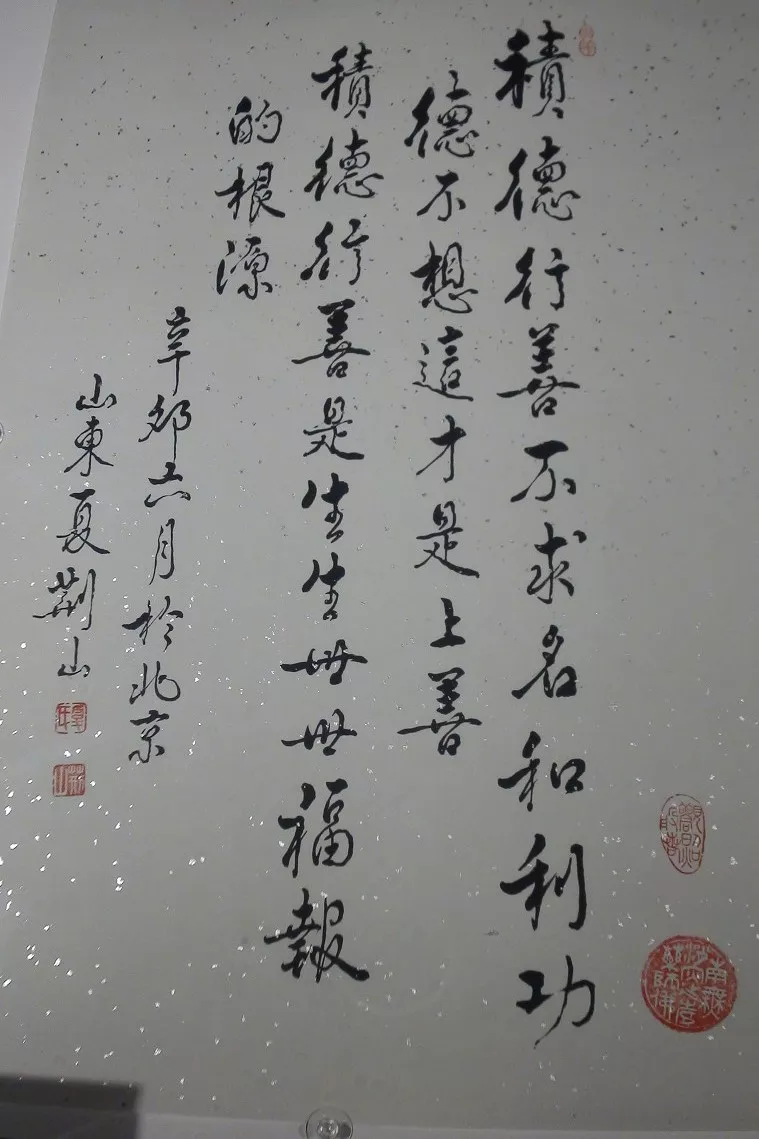 積德行善不求名和利功
德不想這才是上善
積德行善是生生世世福報
的根源
辛卯六月於北京
山東夏荊山